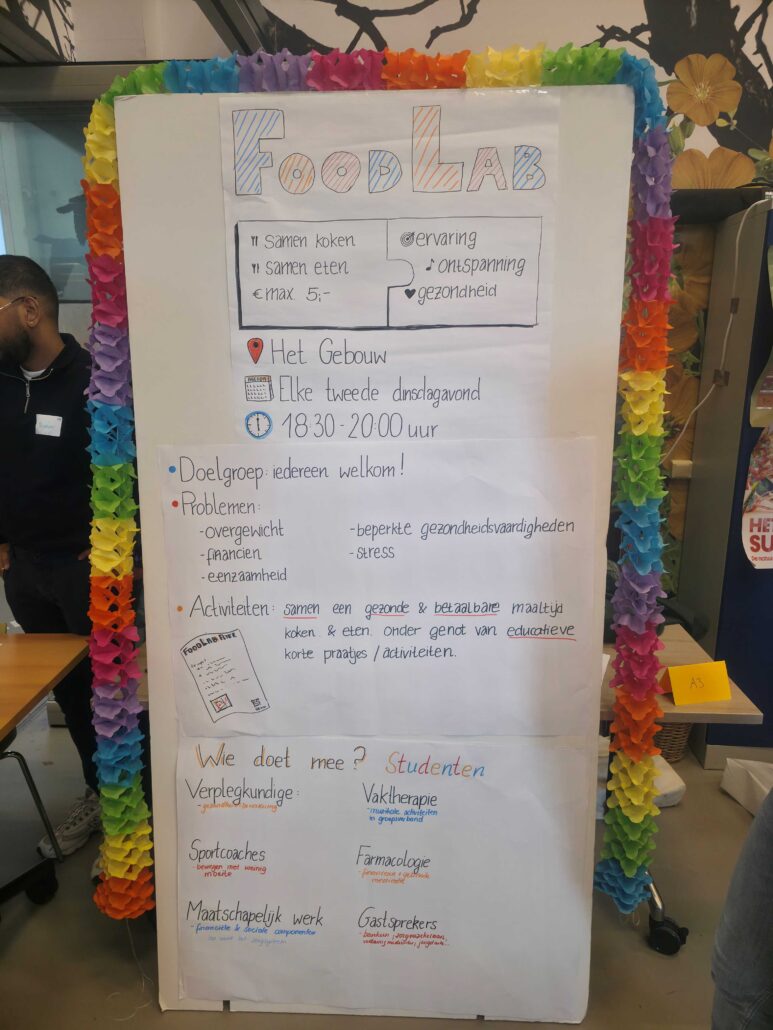 FOODLAB
samen koken
samen eten
€ max 5,-
ervaring
ontspanning
gezondheid
Het Gebouw
Elke tweede dinsdagavond
18:30-20:00 uur
• Doelgroep: iedereen welkom!
• Problemen:
-overgewicht
-financiën
-eenzaamheid
-beperkte gezondheidsvaardigheden
-stress
• Activiteiten: samen een gezonde & betaalbare maaltijd
koken & eten onder genot van educatieve
korte praatjes / activiteiten.
FOODLAB FLYER
Wie doet mee? Studenten
Verplegkundige:
Vaktherapie
- muzikale activiteiten
in groepsverband
Sportcoaches
- bewegen met weinig
moeite
Farmacologie
Maatschapelijk werk
- financiële & sociale componenten
Gastsprekers
A3
HE
SU